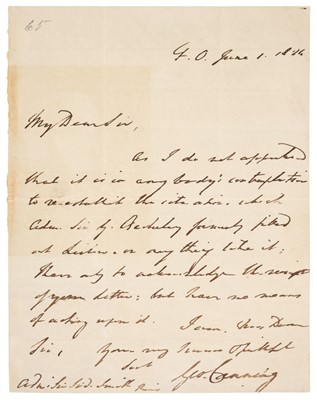 65
F. O. June 1. 1826
My Dear Sir,
As I do not apprehend
that it is in any body's contemplation
to re-establish the situation, which
Adm. Sir G. Berkeley formerly filled
at Lisbon, or any thing like it;
I have only to acknowledge the receipt
of your letter; but have no means
of acting upon it.
I am, Dear
Sir, your very
Geo. Canning
Adm. Sir Sid. Smith